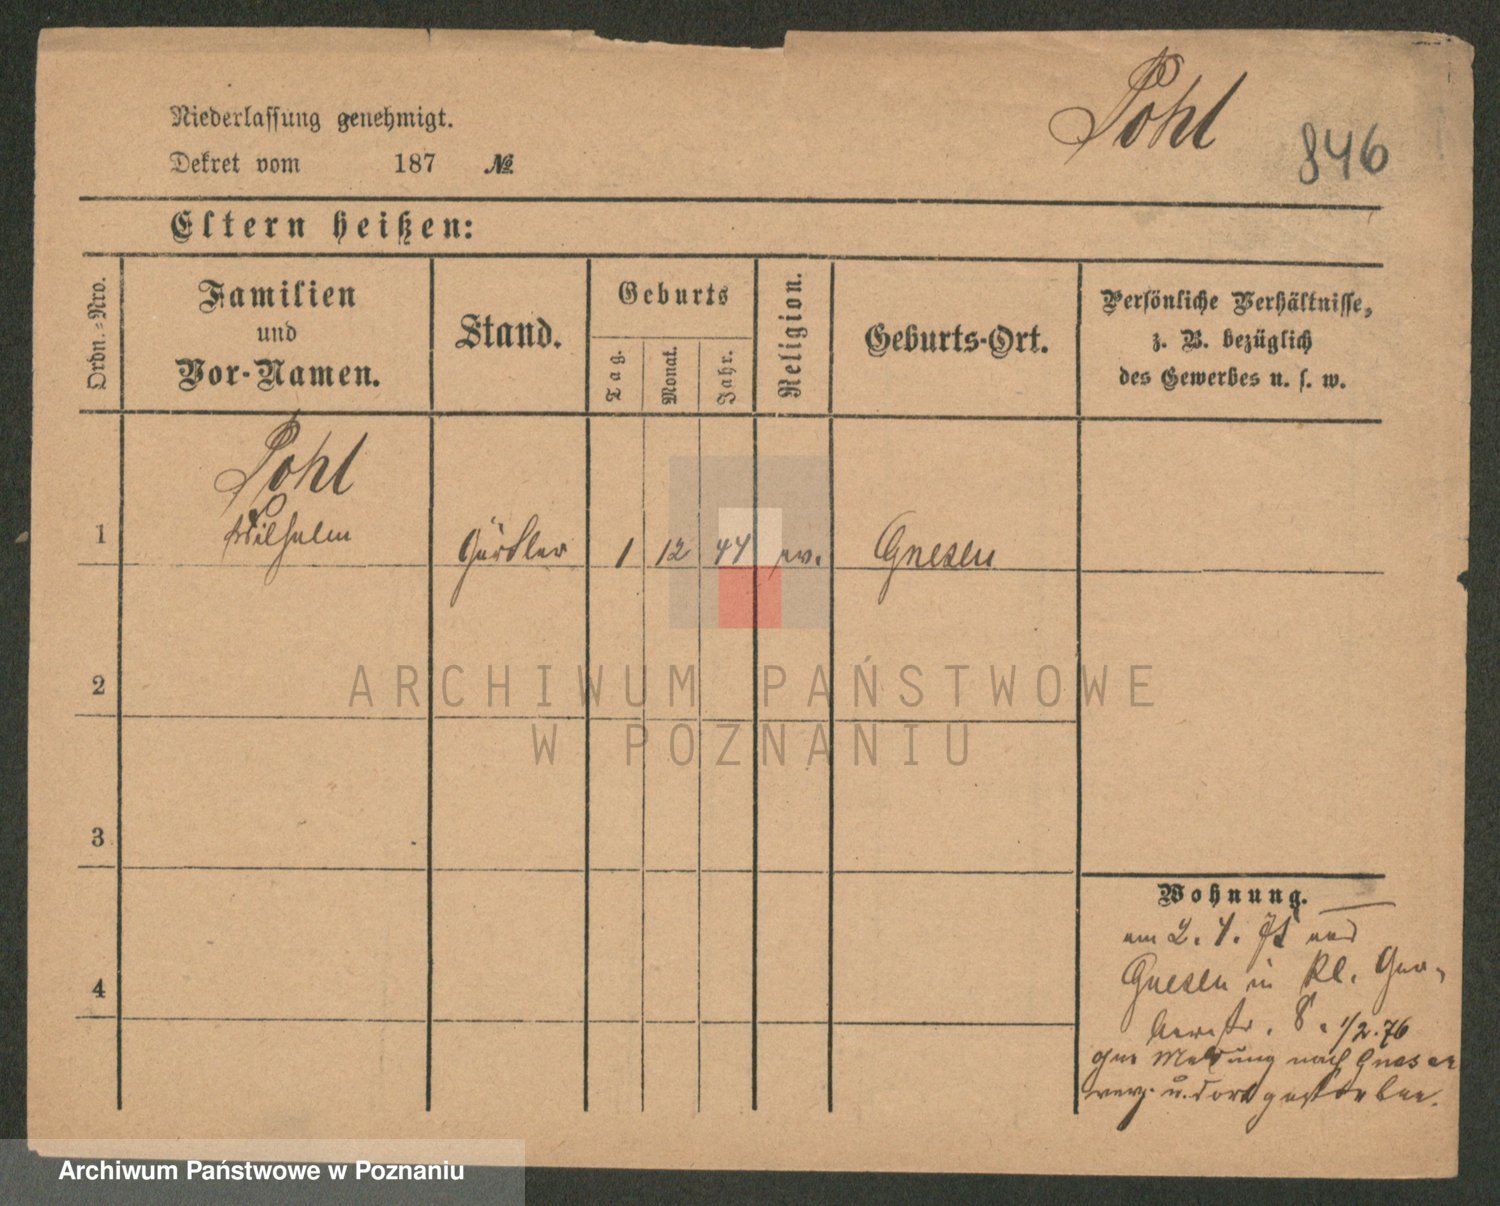 Pohl
846
Niederlassung genehmigt.
Dekret vom 187 №
Eltern heißen:
Ordn.=Nro.
Familien
und
Vor-Namen.
Stand.
Geburts
Tag.
Monat.
Jahr.
Religion.
Geburts-Ort.
Persönliche Verhältnisse,
z. B. bezüglich
des Gewerbes u. s. w.
Pohl
1 Wilhelm Gürtler 1 12 44 ev. Gnesen
2
3
4
ARCHIWUM PAŃSTWOWE
W POZNANIU
Wohnung.
am 2. 4. aus
Gnesen in Kl. Ger-
berstr. 8. 1/2.76
Meldung nach Gnesen
verz. u. dort gestorben.
Archiwum Państwowe w Poznaniu